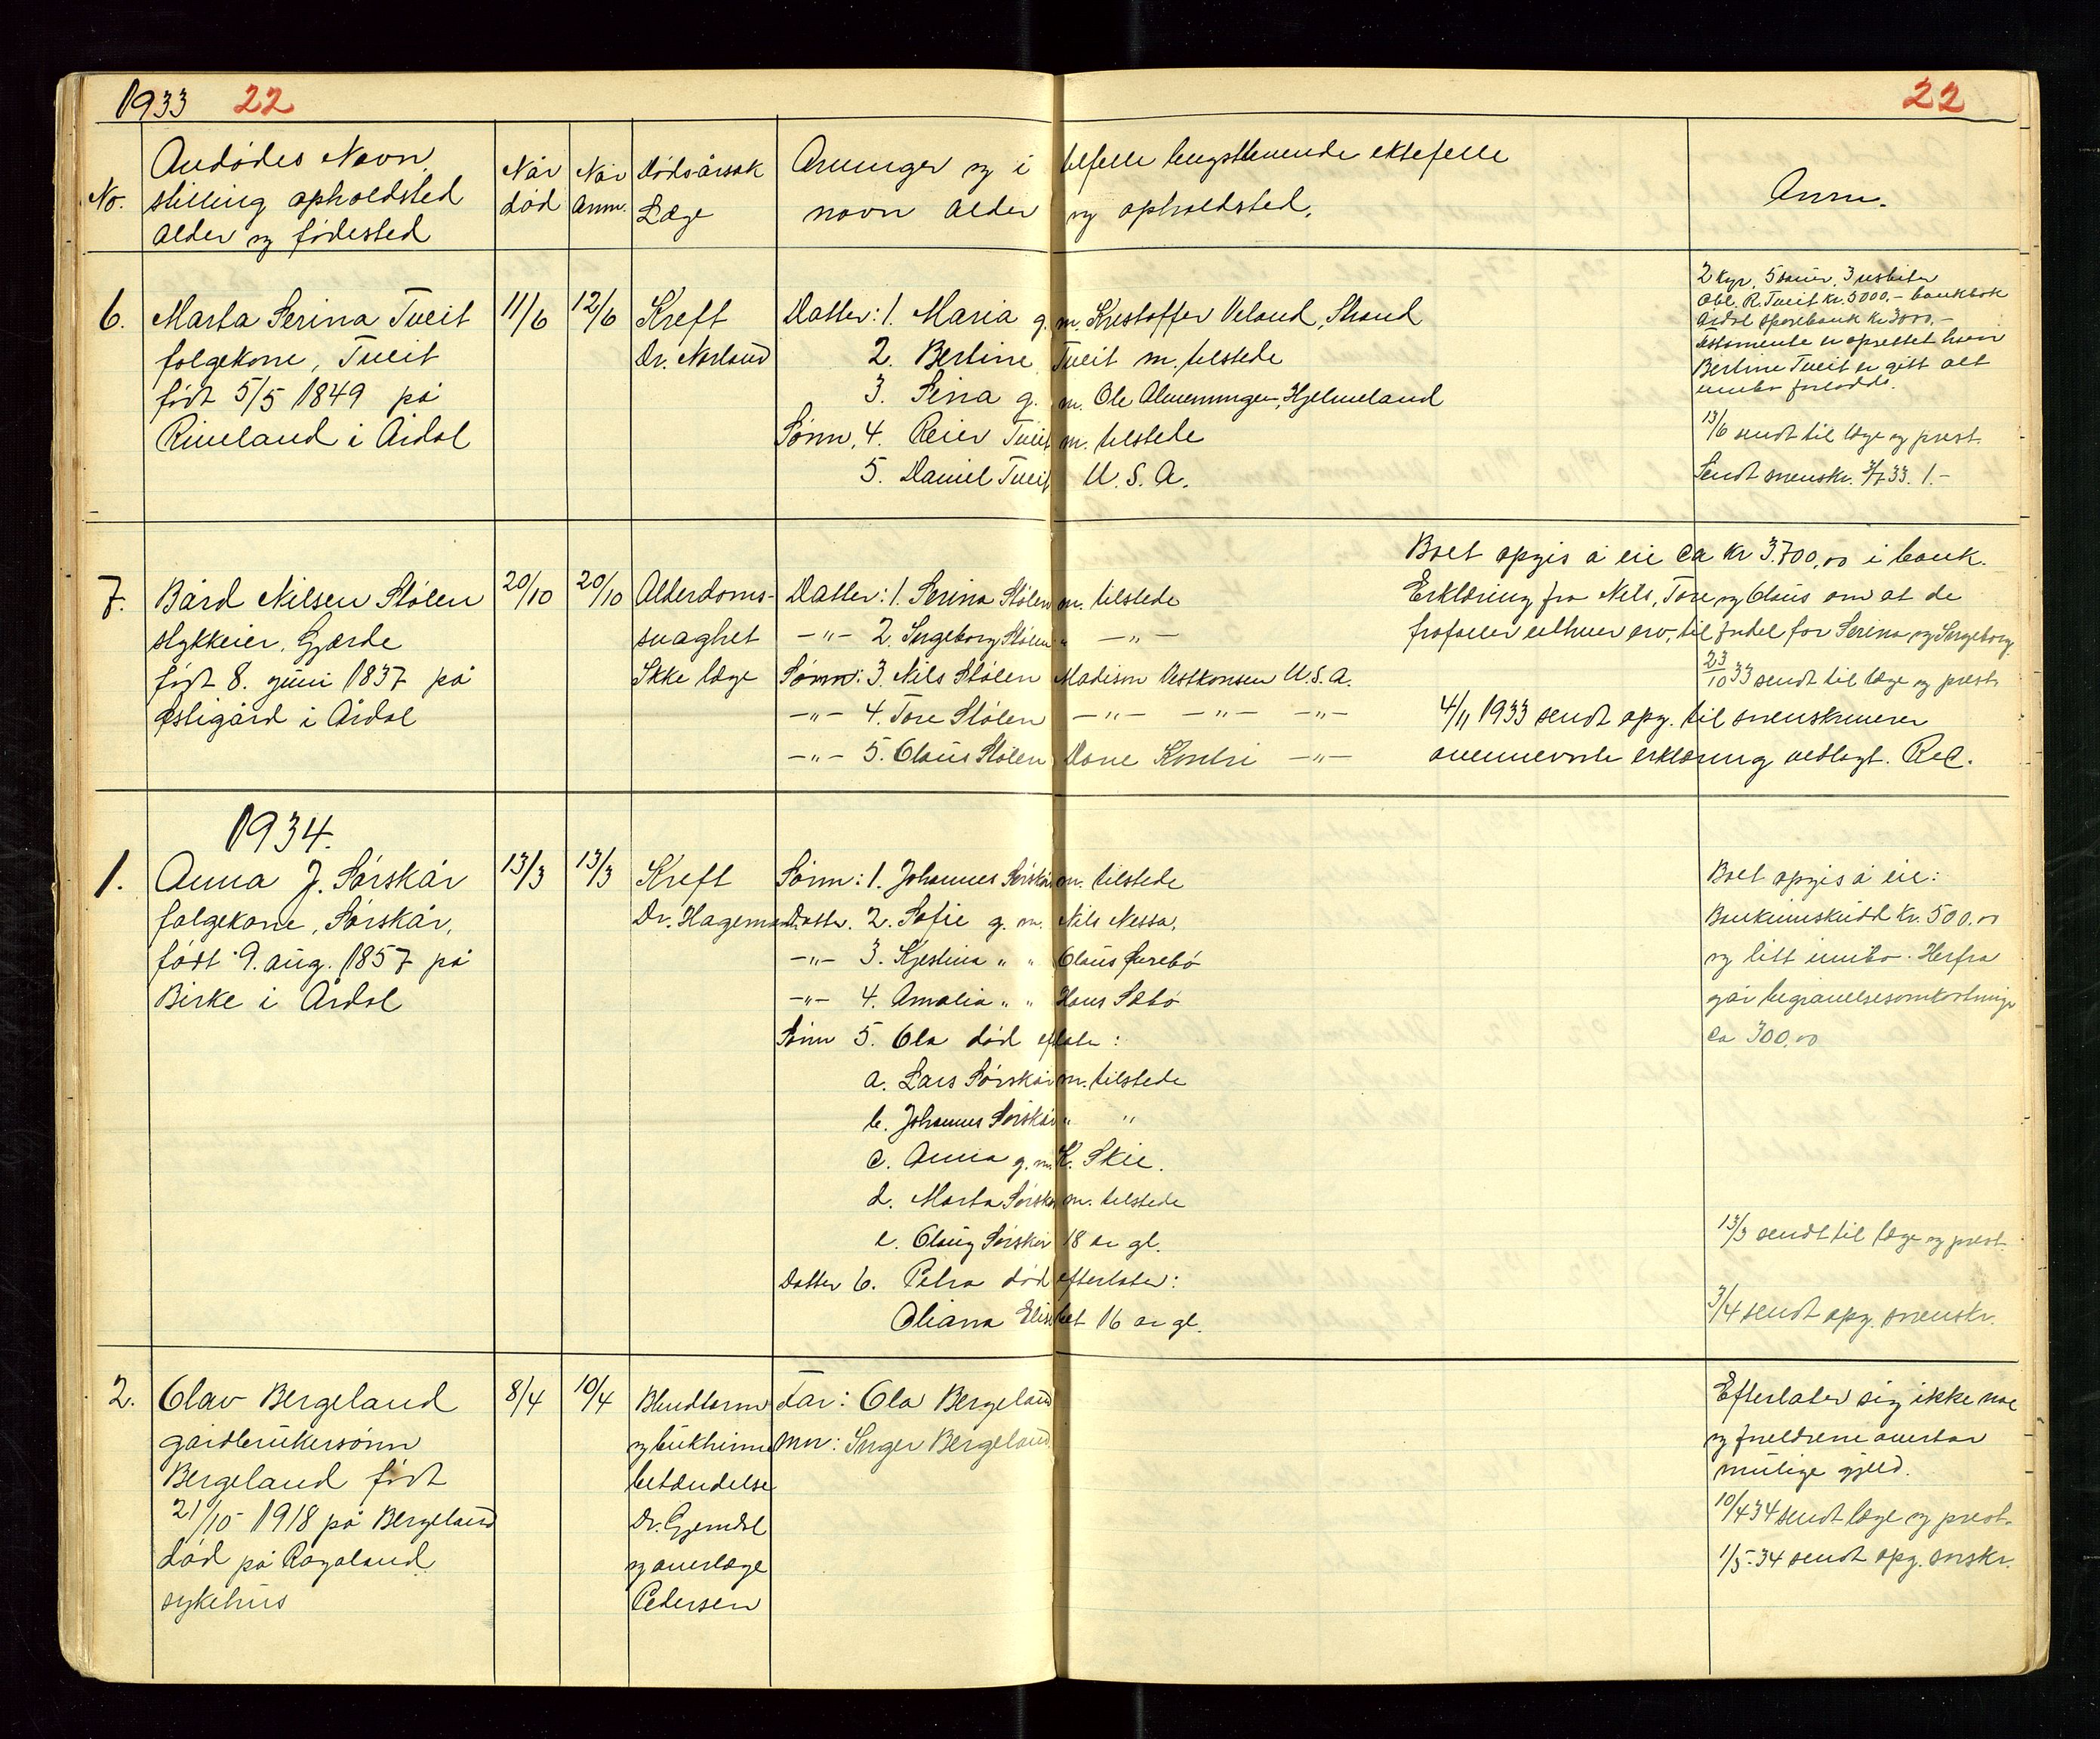 1933 22
22
No.
Avdødes Navn
stilling opholdsted
alder og fødested
Når
død
Når
Anm.
Dødsårsak
Læge
Arvinger og i tilfelle lengstlevende ektefelle
navn alder og opholdsted.
Anm.
6.
Marta Serina Tveit
folgekone, Tveit
født 5/5 1849 på
Riveland i Årdal
11/6
12/6
Kreft
Dr. Norland
Datter: 1. Maria g. m. Kristoffer Veland, Strand
2. Bertine Tveit m. tilstede
3. Sina g. m. Ole Almenningen, Hjelmeland
Sønn, 4. Reier Tveit m. tilstede
5. Daniel Tveit U. S. A.
2 kyr, 5 sauer, 3
Obl. R. Tveit kr. 5000,- bankbok
Årdal sparebank kr 3000,-
Testamente er oprettet hvori
Bertine Tveit er gitt alt
innbo forlodds.
13/6 sendt til læge og prest.
Sendt sorenskr. 3/7 33. 1.-
7.
Bård Nilsen Stølen
stykkeier, Gjærde
født 8. juni 1837 på
Østigård i Årdal
20/10
20/10
Alderdoms-
svaghet
Ikke læge
Datter: 1. Serina Stølen m. tilstede
-"- 2. Ingeborg Stølen " -"-
Sønn: 3. Nils Stølen Madison Vestkonsen U.S.A.
-"- 4. Tore Stølen -"- -"- -"-
-"- 5. Olaus Stølen Dane Kontri -"-
Boet opgis å eie ca kr 3.700,00 i bank.
Erklæring fra Nils, Tore og Olaus om at de
frafaller enhver arv, til fordel for Serina og Ingeborg.
23/10 33 sendt til læge og prest.
4/11 1933 sendt opg. til sorenskriveren
ovennevnte erklæring vedlagt. Rec.
1934.
1.
Anna J. Sørskår
folgekone, Sørskår,
født 9. aug. 1857 på
Birke i Årdal
13/3
13/3
Kreft
Dr. Hagemann
Sønn: 1. Johannes Sørskår m. tilstede
Datter. 2. Sofie g. m. Nils Nessa,
-"- 3. Kjestina " " Olaus Furebø
-"- 4. Amalia " " Hans Sæbø
Sønn 5. Ola død eflater:
a. Lars Sørskår m. tilstede
b. Johannes Sørskår " "
c. Anna g. m. K. Skie.
d. Marta Sørskår m. tilstede
e. Olaug Sørskår 18 år gl.
Datter 6. Petra død efterlater:
Oliana Elisabet 16 år gl.
Boet opgis å eie:
Bankinnskudd kr. 500.00
og litt innbo. Herfra
går begravelsesomkostninger
ca 300.00
13/3 sendt til læge og prest.
3/4 sendt opg. sorenskr.
2.
Olav Bergeland
gårdbrukersønn
Bergeland født
21/10 1918 på Bergeland
død på Rogaland
sykehus
8/4
10/4
Blindtarm
og bukhinne
betændelse
Dr. Gjendal
og overlæge
Pedersen
Far: Ola Bergeland
Mor: Inger Bergeland
Efterlater sig ikke noe
og foreldrene overtar
mulige gjeld.
10/4 34 sendt læge og prest.
1/5-34 sendt opg. sorskr.